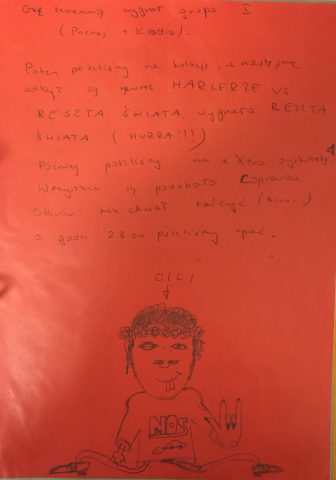 Grę terenową wygrała grupa I
( + Klaudia).
Potem poszliśmy na kolację, a następnie
odbył się mecz HARCERZE VS
RESZTA ŚWIATA wygrała RESZTA
ŚWIATA (HURRA!!!)
Później poszliśmy na dyskotekę.
Wszystkim się podobało. Coprawda
nie chciał
o godz. 23.00 poszliśmy spać.
OLLI
NOS